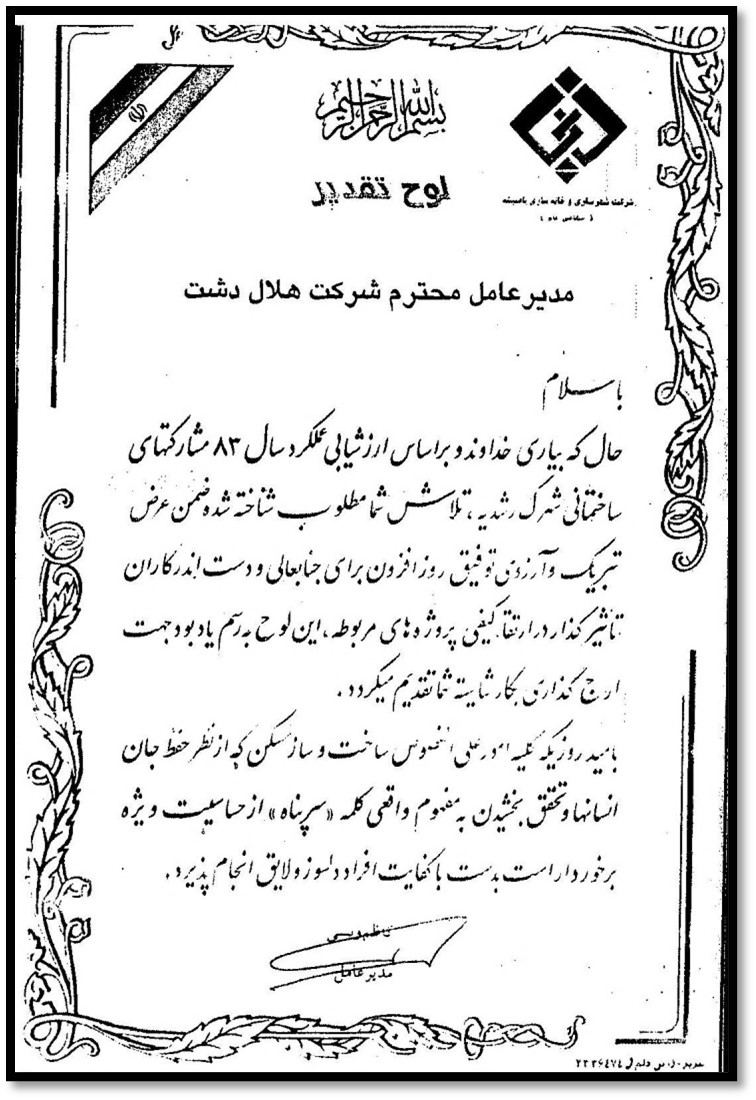 بسم الله الرحمن الرحیم
لوح تقدیر
شرکت شهرسازی و خانه سازی باغمیشه
( سهامی عام )
مدیر عامل محترم شرکت هلال دشت
با سلام
حال که بیاری خداوند و براساس ارزشیابی عملکرد سال ۸۳ مشارکتهای
ساختمانی شهرک رشدیه ، تلاش شما مطلوب شناخته شده ضمن عرض
تبریک و آرزوی توفیق روز افزون برای جنابعالی و دست اندرکاران
تاثیر گذار در ارتقاء کیفی پروژه های مربوطه ، این لوح به رسم یادبود جهت
ارج گذاری بکار شایسته شما تقدیم میگردد .
بامید روزیکه کلیه امور علی الخصوص ساخت و ساز مسکن که از نظر حفظ جان
انسانها و تحقق بخشیدن به مفهوم واقعی کلمه «سرپناه» از حساسیت ویژه
برخوردار است بدست با کفایت افراد دلسوز و لایق انجام پذیرد .
کاظم ویسی
مدیر عامل